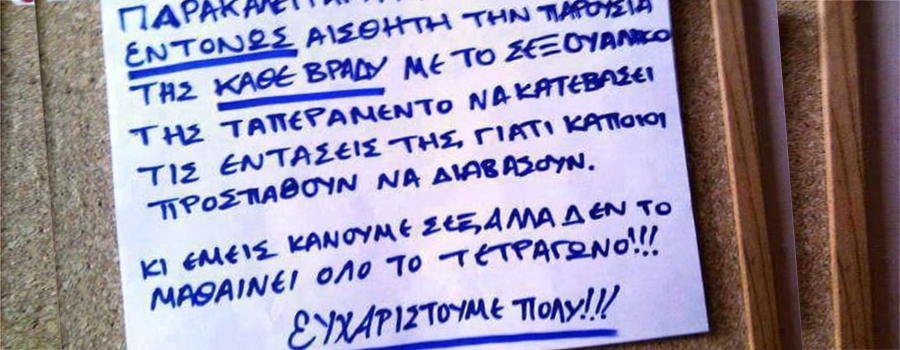 ΕΝΤΟΝΩΣ ΑΙΣΘΗΤΗ ΤΗΝ ΠΑΡΟΥΣΙΑ
ΤΗΣ ΚΑΘΕ ΒΡΑΔΥ ΜΕ ΤΟ ΣΕΞΟΥΑΛΙΚΟ
ΤΗΣ ΤΑΠΕΡΑΜΕΝΤΟ ΝΑ ΚΑΤΕΒΑΣΕΙ
ΤΙΣ ΕΝΤΑΣΕΙΣ ΤΗΣ, ΓΙΑΤΙ ΚΑΠΟΙΟΙ
ΠΡΟΣΠΑΘΟΥΝ ΝΑ ΔΙΑΒΑΣΟΥΝ.
ΚΙ ΕΜΕΙΣ ΚΑΝΟΥΜΕ ΣΕΞ, ΑΛΛΑ ΔΕΝ ΤΟ
ΜΑΘΑΙΝΕΙ ΟΛΟ ΤΟ ΤΕΤΡΑΓΩΝΟ!!!
ΕΥΧΑΡΙΣΤΟΥΜΕ ΠΟΛΥ!!!